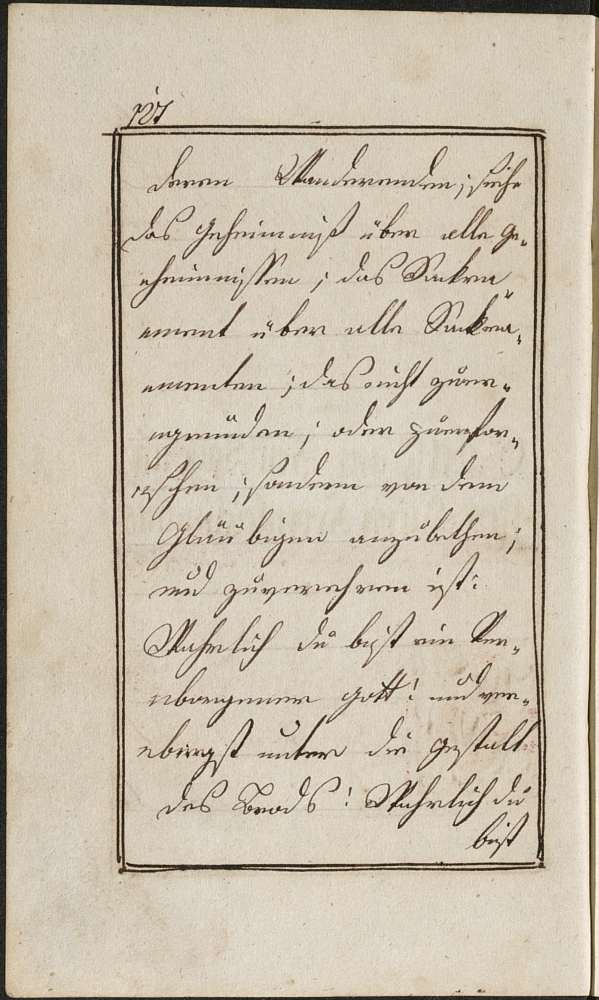 127
deren Wanderenden; siehe
das geheimniß über alle ge„
eheimnissen; das Sackra
ament über alle Sackra„
amenten; das nicht zuer„
rgründen; oder zuerfor„
rschen; sondern von dem
Gläubigen anzubethen;
und zuverehren ist:
Wahrlich du bist ein Ver„
rborgener gott! und ver„
rbirgst unter die gestalt
des Brods! Wahrlich du
bist